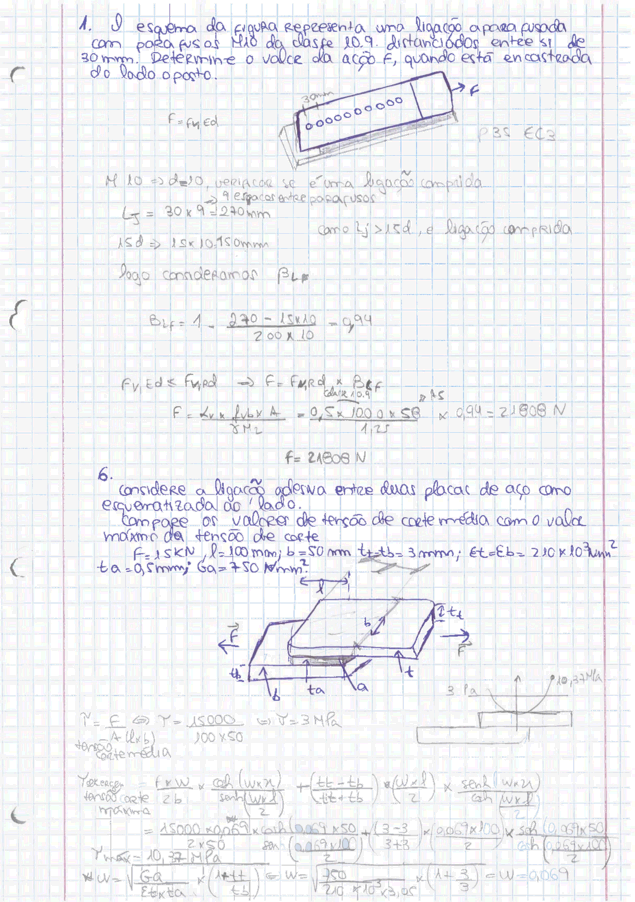 1. O esquema da figura representa uma ligação aparafusada
com parafusos M10 da classe 10.9. distanciados entre si de
30mm. Determine o valor da acção F, quando está encastrada
do lado oposto.
30mm
F
F = Fv,Ed
P35 EC3
M 10 => d=10, verificar se é uma ligação comprida
→ 9 espaços entre parafusos
Lj = 30 x 9 = 270mm
15d => 15x10,150mm
como Lj > 15d, é ligação comprida
logo consideramos βLF
BLf = 1 - 270 - 15x10 / 200 x 10 = 0,94
Fv,Ed ≤ Fv,Rd → F = Fv,Rd x BLF
classe 10.9
F = αv x fub x A / γM2 = 0,5 x 1000 x 58 / 1,25 x 0,94 = 21808 N
F = 21808 N
6.
Considere a ligação adesiva entre duas placas de aço como
esquematizada ao lado.
Compare os valores de tensão de corte média com o valor
máximo da tensão de corte
F = 15KN, l = 100mm; b = 50 mm tt=tb= 3mm; Et=Eb= 210 x 10³ N/mm²
ta = 0,5mm; Ga = 750 N/mm².
l
b
tt
F
F
tb
b
ta
a
t
3 Pa
10,37MPa
τ = F / A (lxb) ⇔ τ = 15000 / 100 x 50 ⇔ τ = 3 MPa
tensão corte média
tensão corte máxima
= F x W / 2b x cosh (w x x) / senh (w x l / 2) + (tt - tb / tt + tb) x (w x l / 2) x senh (w x x) / cosh (w x l / 2)
= 15000 x 0,069 / 2 x 50 x cosh (0,069 x 50) / senh (0,069 x 100 / 2) + (3-3 / 3+3) x (0,069x100 / 2) x senh (0,069 x 50) / cosh (0,069x100 / 2)
τmáx = 10,37 MPa
* W = √ Ga / Et x ta x (1 + tt / tb) ⇔ W = √ 750 / 210 x 10³ x 3,05 x (1 + 3/3) ⇔ W = 0,069